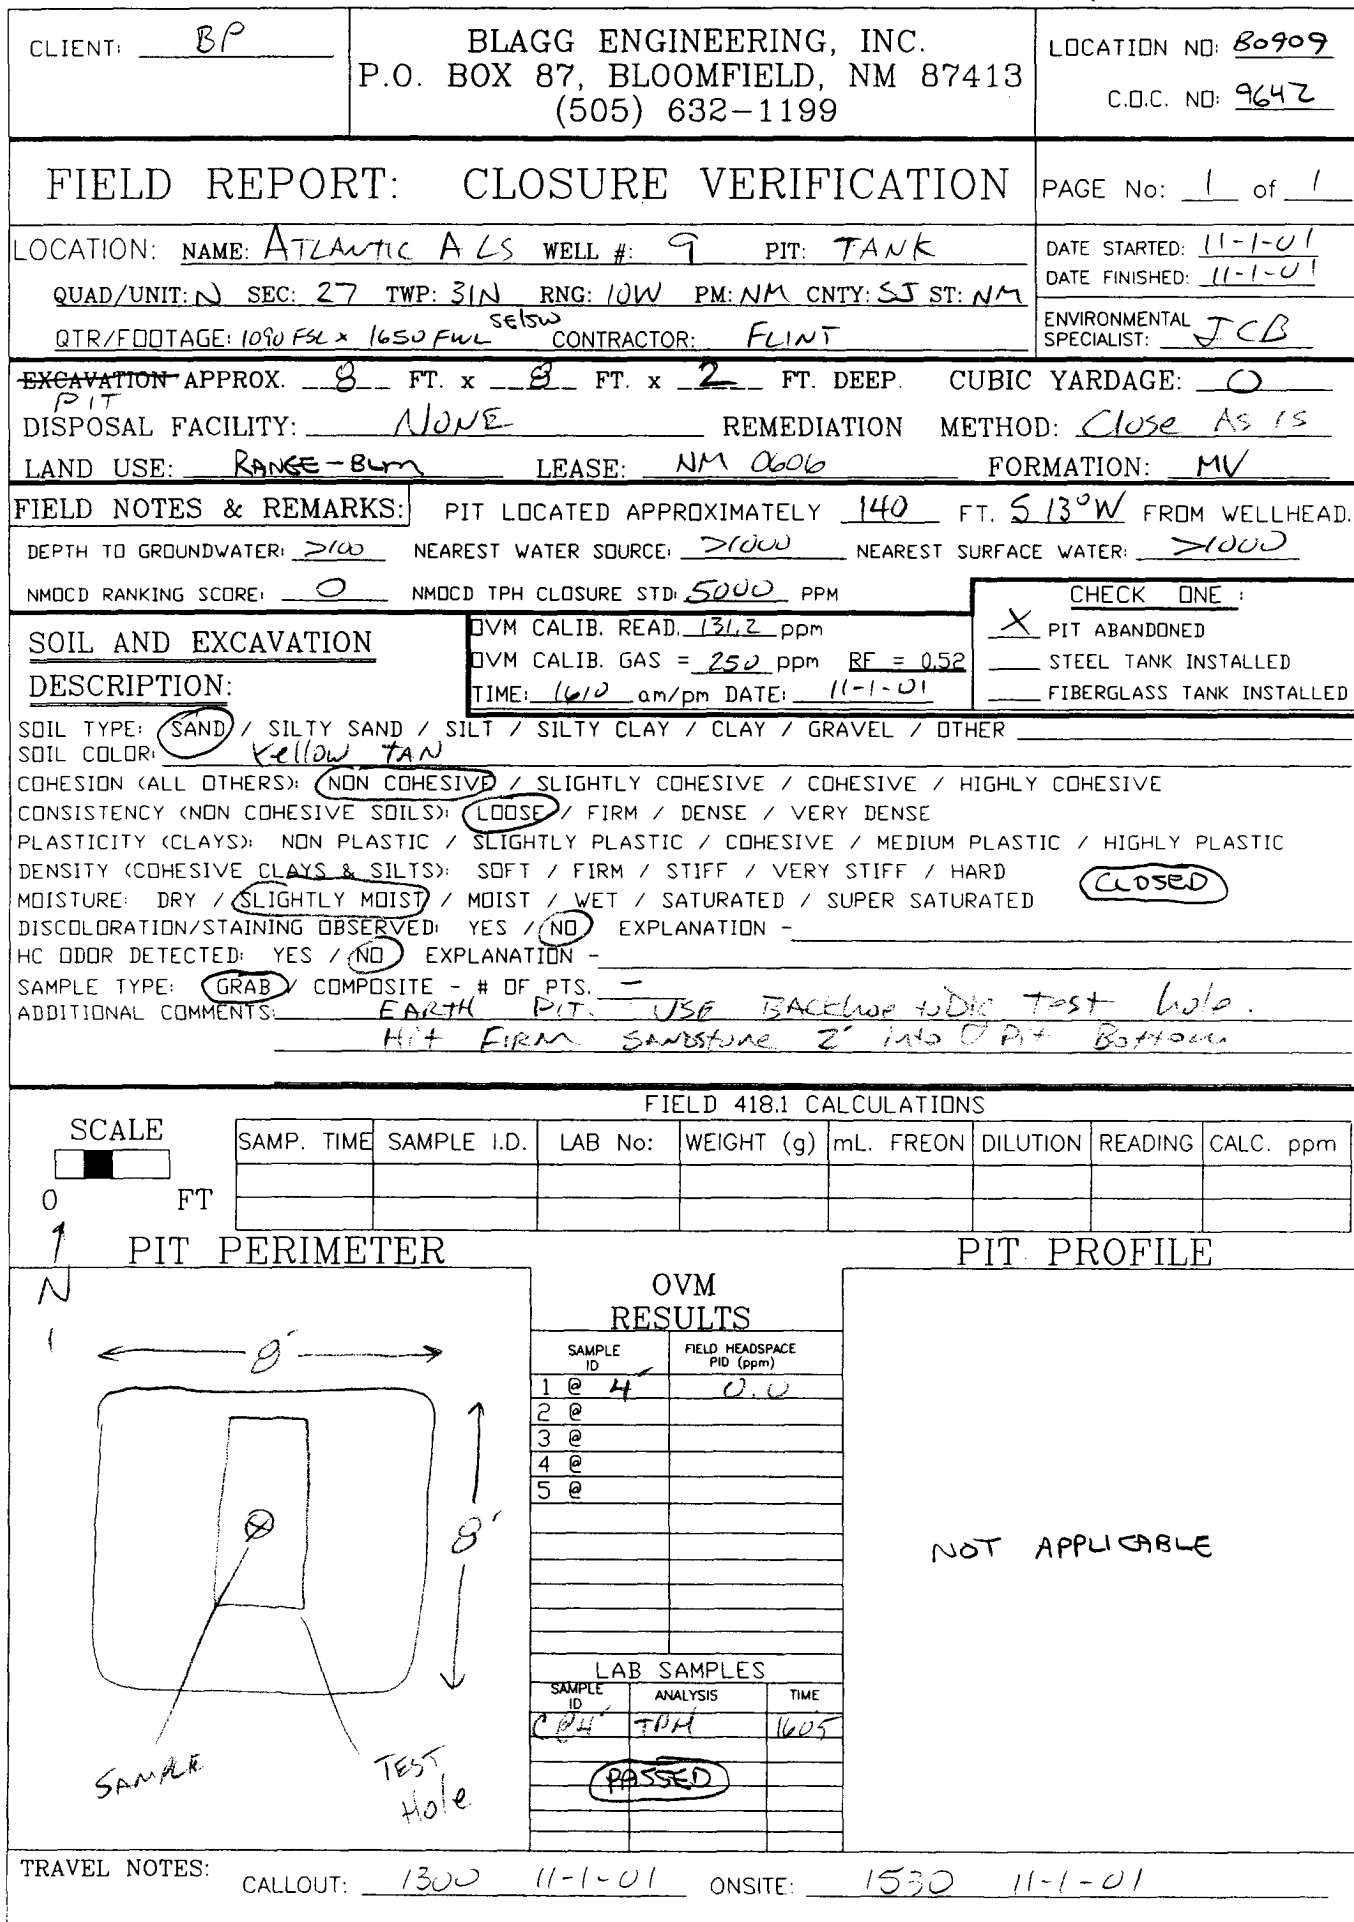 CLIENT: BP
BLAGG ENGINEERING, INC.
P.O. BOX 87, BLOOMFIELD, NM 87413
(505) 632-1199
LOCATION NO: B0909
C.O.C. NO: 9642
FIELD REPORT: CLOSURE VERIFICATION
PAGE No: 1 of 1
LOCATION: NAME: ATLANTIC A LS WELL #: 9 PIT: TANK
QUAD/UNIT: N SEC: 27 TWP: 31N RNG: 10W PM: NM CNTY: SJ ST: NM
QTR/FOOTAGE: 1090 FSL x 1650 FWL SE/SW CONTRACTOR: FLINT
DATE STARTED: 11-1-01
DATE FINISHED: 11-1-01
ENVIRONMENTAL
SPECIALIST: JCB
EXCAVATION APPROX. 8 FT. x 8 FT. x 2 FT. DEEP. CUBIC YARDAGE: 0
PIT
DISPOSAL FACILITY: NONE REMEDIATION METHOD: Close As is
LAND USE: RANGE-BLM LEASE: NM 0606 FORMATION: MV
FIELD NOTES & REMARKS: PIT LOCATED APPROXIMATELY 140 FT. S 13°W FROM WELLHEAD.
DEPTH TO GROUNDWATER: >100 NEAREST WATER SOURCE: >1000 NEAREST SURFACE WATER: >1000
NMOCD RANKING SCORE: 0 NMOCD TPH CLOSURE STD: 5000 PPM
CHECK ONE :
X PIT ABANDONED
STEEL TANK INSTALLED
FIBERGLASS TANK INSTALLED
SOIL AND EXCAVATION
DESCRIPTION:
OVM CALIB. READ. 131.2 ppm
OVM CALIB. GAS = 250 ppm RF = 0.52
TIME: 1610 am/pm DATE: 11-1-01
SOIL TYPE: SAND / SILTY SAND / SILT / SILTY CLAY / CLAY / GRAVEL / OTHER
SOIL COLOR: Yellow TAN
COHESION (ALL OTHERS): NON COHESIVE / SLIGHTLY COHESIVE / COHESIVE / HIGHLY COHESIVE
CONSISTENCY (NON COHESIVE SOILS): LOOSE / FIRM / DENSE / VERY DENSE
PLASTICITY (CLAYS): NON PLASTIC / SLIGHTLY PLASTIC / COHESIVE / MEDIUM PLASTIC / HIGHLY PLASTIC
DENSITY (COHESIVE CLAYS & SILTS): SOFT / FIRM / STIFF / VERY STIFF / HARD
CLOSED
MOISTURE: DRY / SLIGHTLY MOIST / MOIST / WET / SATURATED / SUPER SATURATED
DISCOLORATION/STAINING OBSERVED: YES / NO EXPLANATION -
HC ODOR DETECTED: YES / NO EXPLANATION -
SAMPLE TYPE: GRAB / COMPOSITE - # OF PTS. —
ADDITIONAL COMMENTS: EARTH PIT. USE BACKhoe to Dig Test hole.
Hit FIRM SANDstone 2' into Pit Bottom
FIELD 418.1 CALCULATIONS
SCALE
0 FT
SAMP. TIME SAMPLE I.D. LAB No: WEIGHT (g) mL. FREON DILUTION READING CALC. ppm
PIT PERIMETER
PIT PROFILE
N
8'
8'
SAMPLE
TEST
Hole
OVM
RESULTS
SAMPLE
ID
FIELD HEADSPACE
PID (ppm)
1 @ 4' 0.0
2 @
3 @
4 @
5 @
LAB SAMPLES
SAMPLE
ID
ANALYSIS
TIME
C@4' TPH 1605
PASSED
NOT APPLICABLE
TRAVEL NOTES: CALLOUT: 1300 11-1-01 ONSITE: 1530 11-1-01